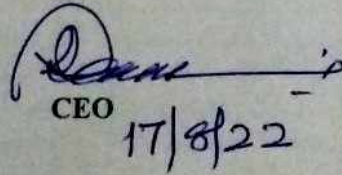 CEO
17/8/22